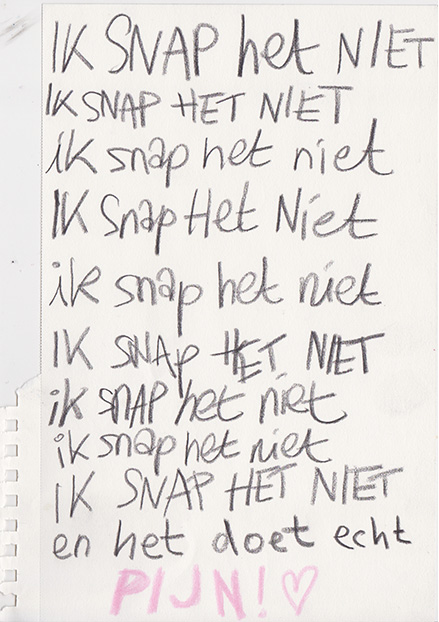 IK SNAP het NIET
IK SNAP HET NIET
ik snap het niet
IK Snap Het Niet
ik snap het niet
IK SNAp HET NIET
ik snAP het niet
ik snap het niet
IK SNAP HET NIET
en het doet echt
PIJN! ♡